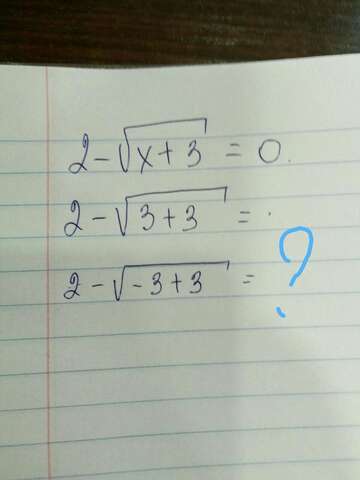 2-√x+3 = 0.
2-√3+3 = .
2-√-3+3 = ?